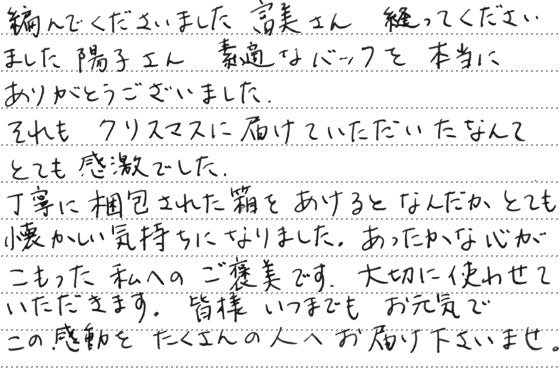 編んでくださいました 富美さん 縫ってください
ました 陽子さん 素適なバックを 本当に
ありがとうございました.
それも クリスマスに届けていただいたなんて
とても感激でした.
丁寧に梱包された箱をあけるとなんだかとても
懐かしい気持ちになりました。あったかな心が
こもった 私への ご褒美です. 大切に使わせて
いただきます。 皆様 いつまでも お元気で
この感動を たくさんの人へ お届け下さいませ。